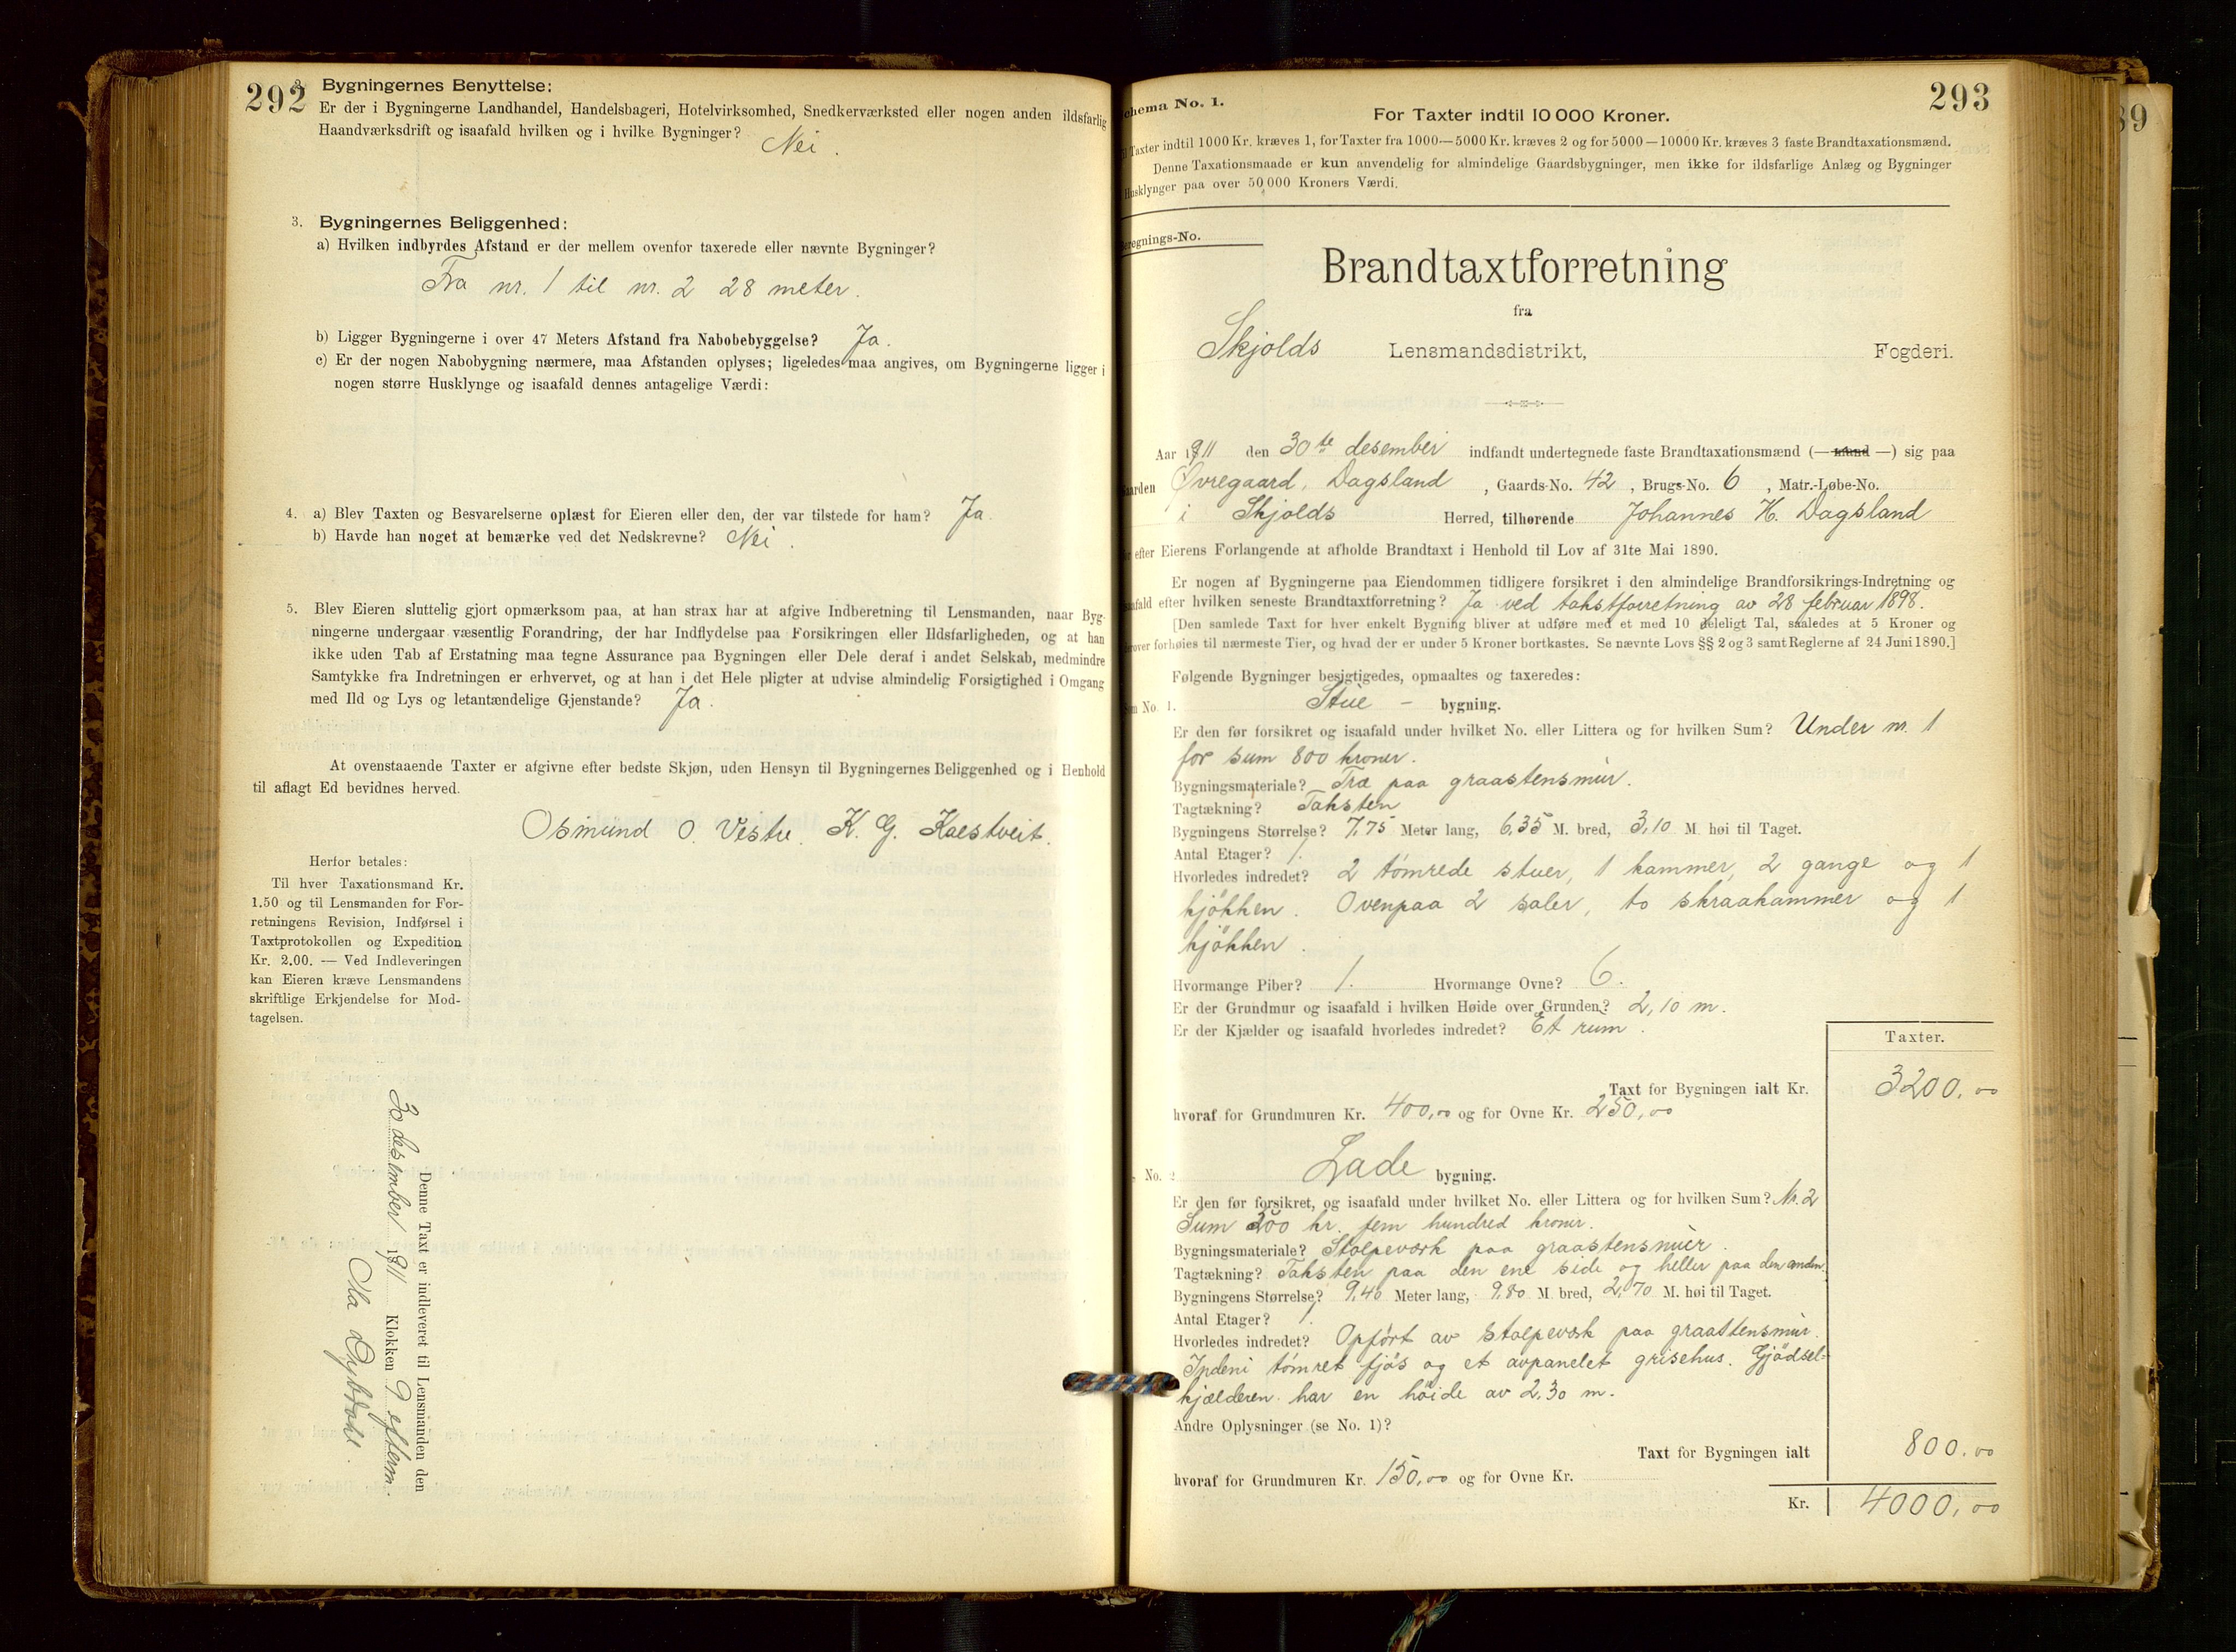 292
2. Bygningernes Benyttelse:
Er der i Bygningerne Landhandel, Handelsbageri, Hotelvirksomhed, Snedkerværksted eller nogen anden ildsfarlig
Haandværksdrift og isaafald hvilken og i hvilke Bygninger? Nei.
3. Bygningernes Beliggenhed:
a) Hvilken indbyrdes Afstand er der mellem ovenfor taxerede eller nævnte Bygninger?
Fra nr. 1 til nr. 2 28 meter.
b) Ligger Bygningerne i over 47 Meters Afstand fra Nabobebyggelse? Ja.
c) Er der nogen Nabobygning nærmere, maa Afstanden oplyses; ligeledes maa angives, om Bygningerne ligger i
nogen større Husklynge og isaafald dennes antagelige Værdi:
4. a) Blev Taxten og Besvarelserne oplæst for Eieren eller den, der var tilstede for ham? Ja.
b) Havde han noget at bemærke ved det Nedskrevne? Nei.
5. Blev Eieren sluttelig gjort opmærksom paa, at han strax har at afgive Indberetning til Lensmanden, naar Byg-
ningerne undergaar væsentlig Forandring, der har Indflydelse paa Forsikringen eller Ildsfarligheden, og at han
ikke uden Tab af Erstatning maa tegne Assurance paa Bygningen eller Dele deraf i andet Selskab, medmindre
Samtykke fra Indretningen er erhvervet, og at han i det Hele pligter at udvise almindelig Forsigtighed i Omgang
med Ild og Lys og letantændelige Gjenstande? Ja.
At ovenstaaende Taxter er afgivne efter bedste Skjøn, uden Hensyn til Bygningernes Beliggenhed og i Henhold
til aflagt Ed bevidnes herved.
Osmund O. Vestre. K. G. Kaestveit.
Herfor betales:
Til hver Taxationsmand Kr.
1.50 og til Lensmanden for For-
retningens Revision, Indførsel i
Taxtprotokollen og Expedition
Kr. 2.00. — Ved Indleveringen
kan Eieren kræve Lensmandens
skriftlige Erkjendelse for Mod-
tagelsen.
Denne Taxt er indleveret til Lensmanden den
30 desember 1911 Klokken 9 efterm.
Ola
293
Schema No. 1.
For Taxter indtil 10 000 Kroner.
Til Taxter indtil 1000 Kr. kræves 1, for Taxter fra 1000—5000 Kr. kræves 2 og for 5000—10000 Kr. kræves 3 faste Brandtaxationsmænd.
Denne Taxationsmaade er kun anvendelig for almindelige Gaardsbygninger, men ikke for ildsfarlige Anlæg og Bygninger
Husklynger paa over 50 000 Kroners Værdi.
Beregnings-No.
Brandtaxtforretning
fra
Skjolds Lensmandsdistrikt, Fogderi.
Aar 1911 den 30te desember indfandt undertegnede faste Brandtaxationsmænd (— mand —) sig paa
Gaarden Øvregaard, Dagsland, Gaards-No. 42, Brugs-No. 6, Matr.-Løbe-No.
i Skjolds Herred, tilhørende Johannes H. Dagsland
for efter Eierens Forlangende at afholde Brandtaxt i Henhold til Lov af 31te Mai 1890.
Er nogen af Bygningerne paa Eiendommen tidligere forsikret i den almindelige Brandforsikrings-Indretning og
isaafald efter hvilken seneste Brandtaxtforretning? Ja ved takstforretning av 28 februar 1898.
[Den samlede Taxt for hver enkelt Bygning bliver at udføre med et med 10 deleligt Tal, saaledes at 5 Kroner og
derover forhøies til nærmeste Tier, og hvad der er under 5 Kroner bortkastes. Se nævnte Lovs §§ 2 og 3 samt Reglerne af 24 Juni 1890.]
Følgende Bygninger besigtigedes, opmaaltes og taxeredes:
Som No. 1. Stue - bygning.
Er den før forsikret og isaafald under hvilket No. eller Littera og for hvilken Sum? Under nr. 1
for sum 800 kroner.
Bygningsmateriale? Træ paa graastensmur.
Tagtækning? Taksten
Bygningens Størrelse? 7,75 Meter lang, 6,35 M. bred, 3,10 M. høi til Taget.
Antal Etager? 1.
Hvorledes indredet? 2 tømrede stuer, 1 kammer, 2 gange og 1
kjøkken. Ovenpaa 2 saler, to skraakammer og 1
kjøkken.
Hvormange Piber? 1. Hvormange Ovne? 6.
Er der Grundmur og isaafald i hvilken Høide over Grunden? 2,10 m.
Er der Kjælder og isaafald hvorledes indredet? Et rum.
Taxter.
Taxt for Bygningen ialt Kr. 3200,00
hvoraf for Grundmuren Kr. 400,00 og for Ovne Kr. 250,00
No. 2 Lade bygning.
Er den før forsikret, og isaafald under hvilket No. eller Littera og for hvilken Sum? Nr. 2
Sum 500 kr. fem hundred kroner.
Bygningsmateriale? Stolpeverk paa graastensmur.
Tagtækning? Taksten paa den ene side og heller paa den anden.
Bygningens Størrelse? 9,40 Meter lang, 9,80 M. bred, 2,70 M. høi til Taget.
Antal Etager? 1.
Hvorledes indredet? Opført av stolpeverk paa graastensmur.
Indeni tømret fjøs og et avpanelet grisehus. Gjødsel-
kjælderen har en høide av 2,30 m.
Andre Oplysninger (se No. 1)?
Taxt for Bygningen ialt 800,00
hvoraf for Grundmuren Kr. 150,00 og for Ovne Kr.
Kr. 4000,00